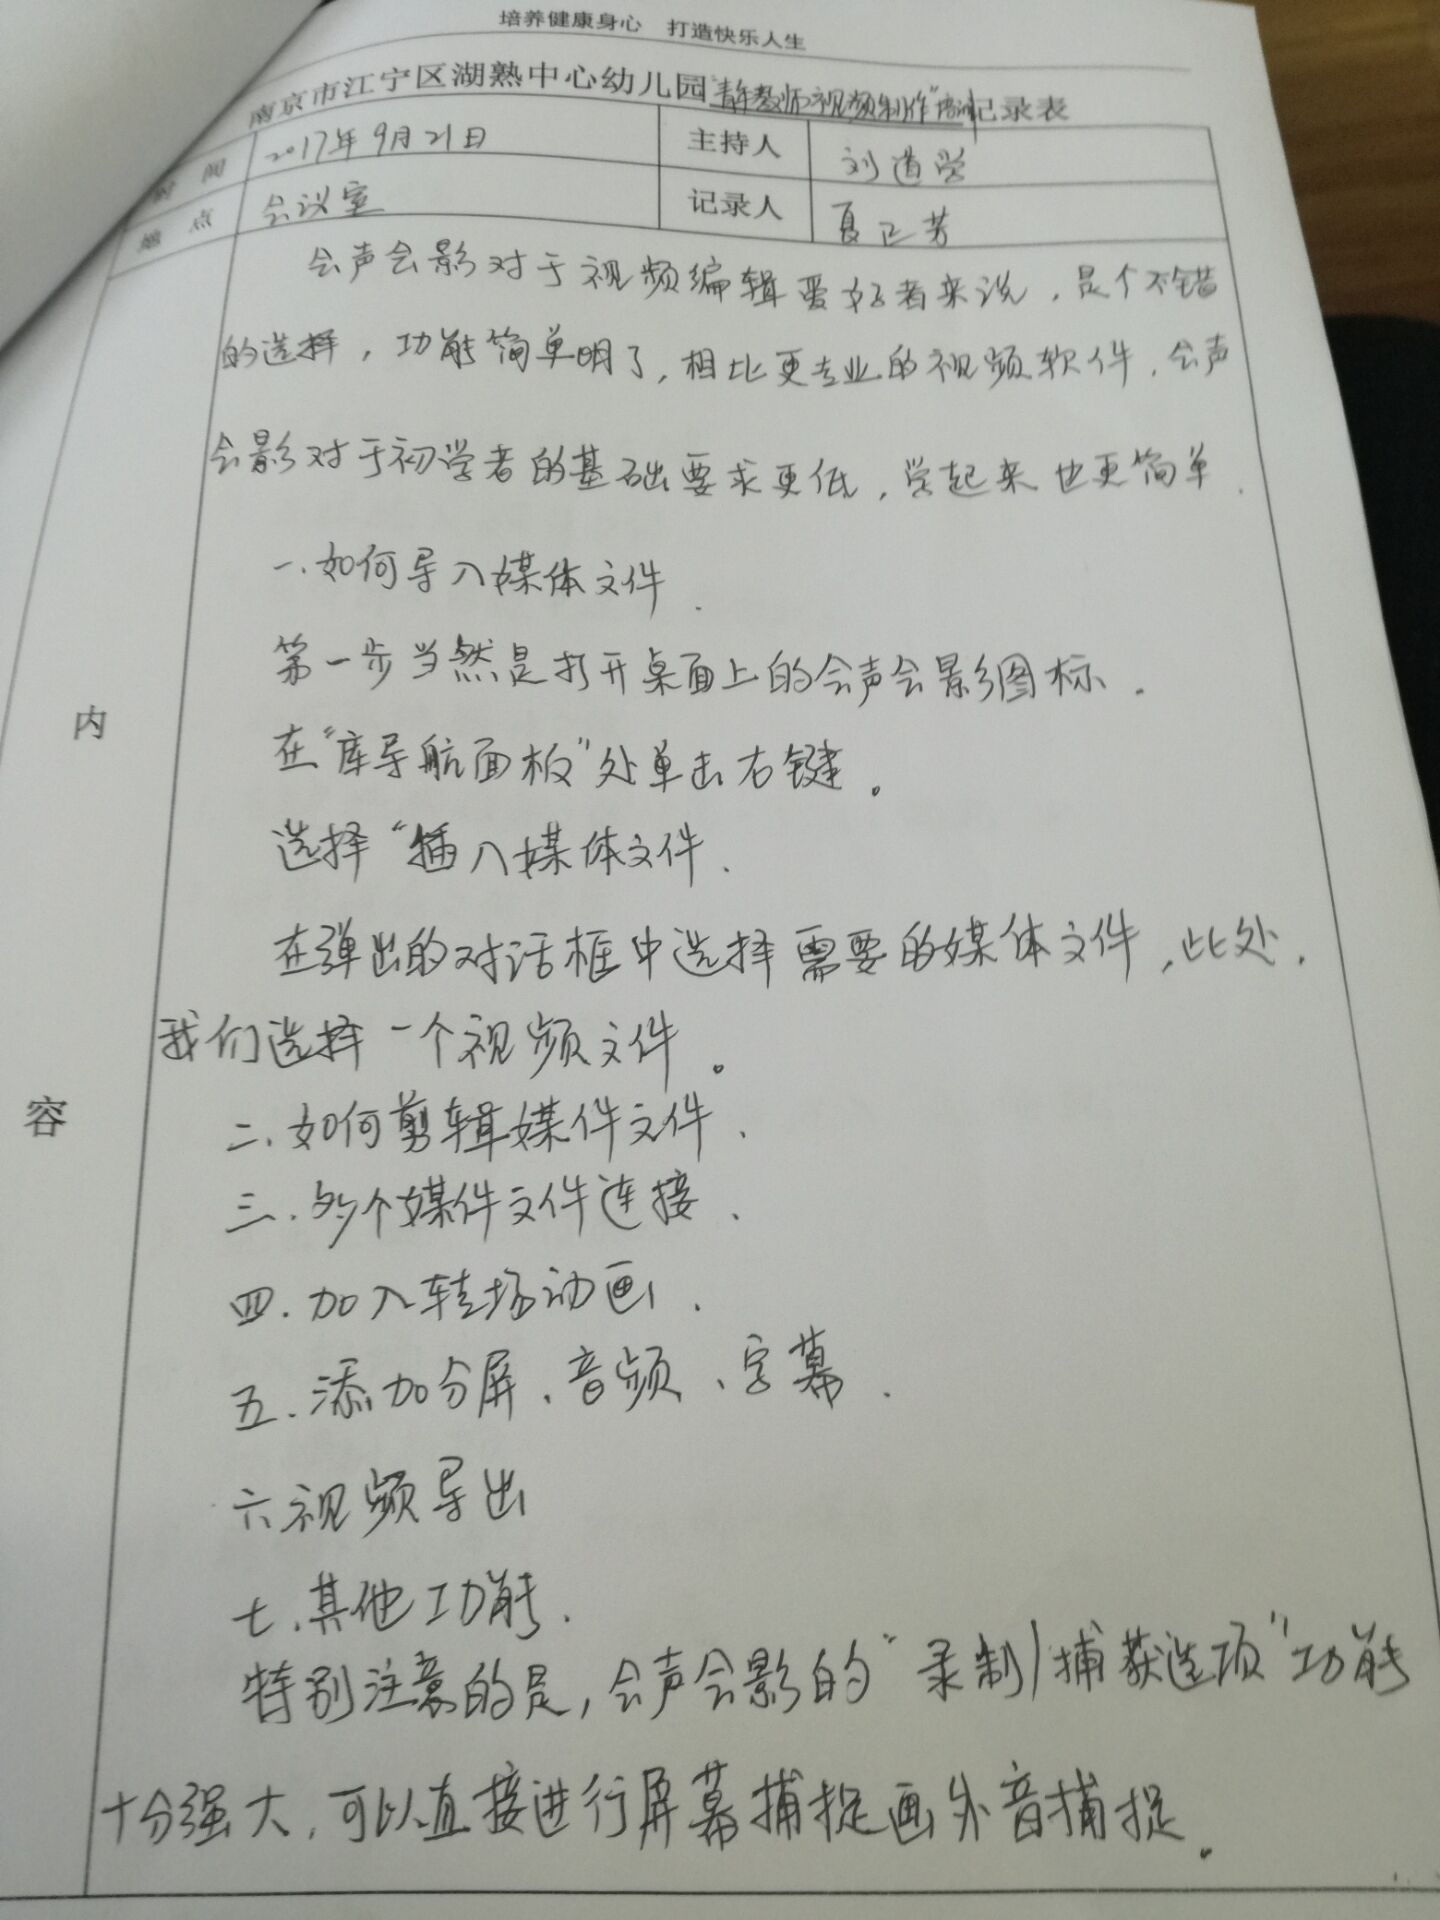 培养健康身心 打造快乐人生
南京市江宁区湖熟中心幼儿园"青年教师视频制作"培训记录表
时间 2017年9月21日 主持人 刘道学
地点 会议室 记录人 夏正芳
会声会影对于视频编辑爱好者来说,是个不错
的选择,功能简单明了,相比更专业的视频软件,会声
会影对于初学者的基础要求更低,学起来也更简单.
一.如何导入媒体文件.
第一步当然是打开桌面上的会声会影图标.
在"库导航面板"处单击右键。
选择"插入媒体文件.
在弹出的对话框中选择需要的媒体文件,此处,
我们选择一个视频文件。
二.如何剪辑媒件文件.
三.多个媒件文件连接.
四.加入转场动画.
五.添加分屏、音频、字幕.
六视频导出
七.其他功能.
特别注意的是,会声会影的"录制/捕获选项"功能
十分强大,可以直接进行屏幕捕捉画外音捕捉。
内
容